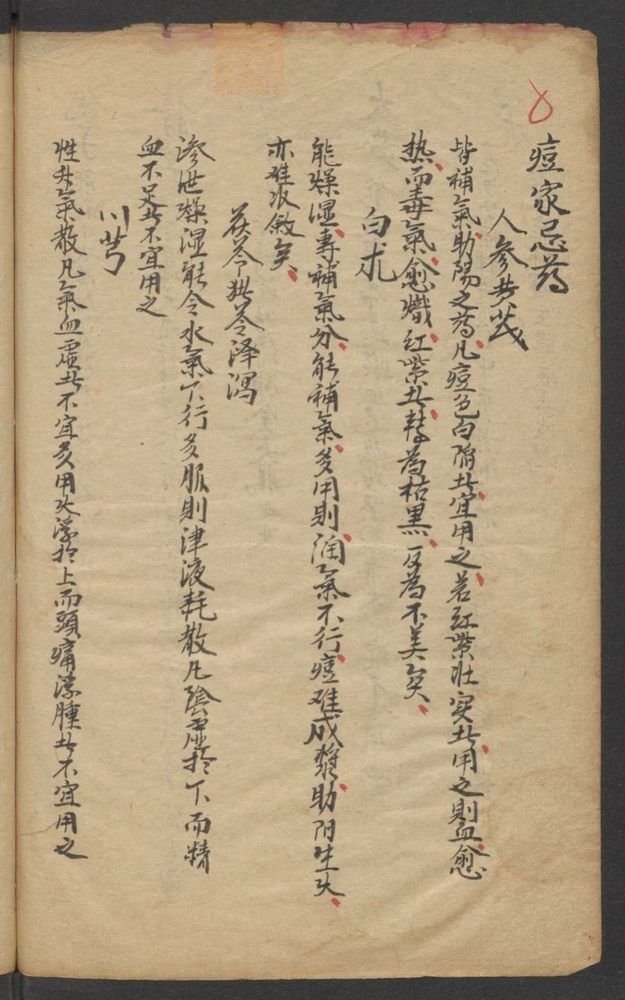 痘家忌药
人参芪
皆補氣助陽之药凡痘色白陷者宜用之若紅紫壯实者用之則血愈
热而毒氣愈熾紅紫者轉為枯黑反為不美矣
白朮
能燥湿專補氣分能補氣多用則潤氣不行痘难成漿助阳生火
亦难收斂矣
茯苓猪苓泽瀉
渗泄燥湿能令水氣下行多服則津液耗散凡陰虛扵下而精
血不足者不宜用之
川芎
性升氣散凡氣血虛者不宜多用火浮扵上而頭痛浮腫者不宜用之